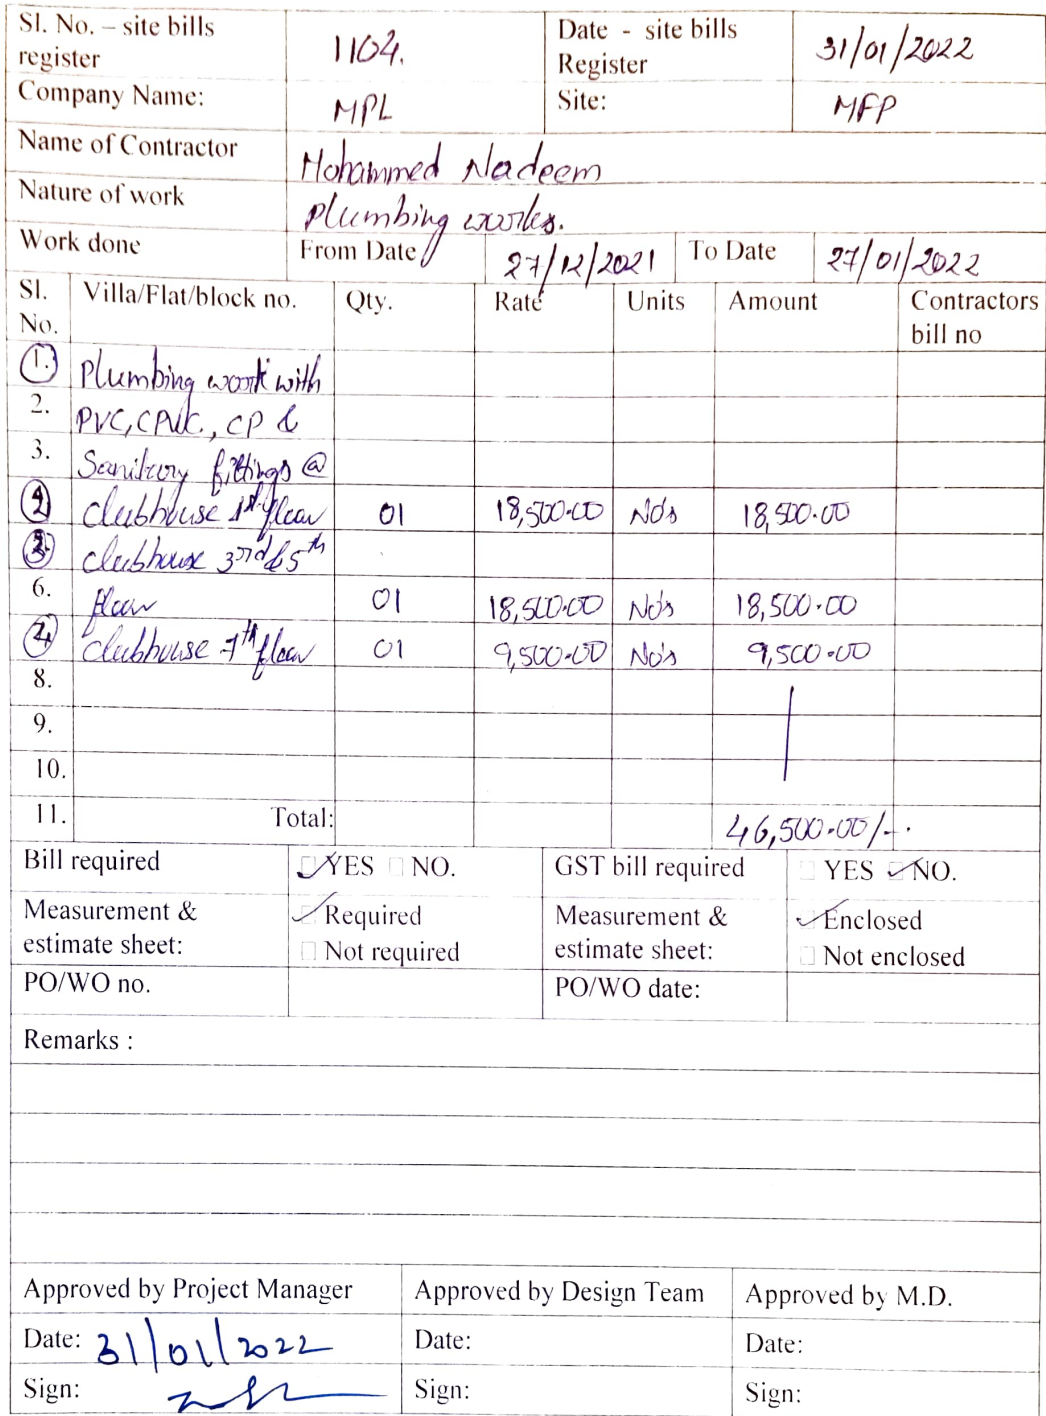 Sl. No. – site bills register 1104. Date - site bills Register 31/01/2022
Company Name: MPL Site: MFP
Name of Contractor Mohammed Nadeem
Nature of work Plumbing works.
Work done From Date 27/12/2021 To Date 27/01/2022
Sl. No. Villa/Flat/block no. Qty. Rate Units Amount Contractors bill no
1. Plumbing work with
2. PVC, CPVC., CP &
3. Sanitory fittings @
2 clubhouse 1st floor 01 18,500.00 No's 18,500.00
3 clubhouse 3rd & 5th
6. floor 01 18,500.00 No's 18,500.00
4 clubhouse 7th floor 01 9,500.00 No's 9,500.00
8.
9.
10.
11. Total: 46,500.00/-.
Bill required YES NO. GST bill required YES NO.
Measurement & estimate sheet: Required Not required Measurement & estimate sheet: Enclosed Not enclosed
PO/WO no. PO/WO date:
Remarks :
Approved by Project Manager Approved by Design Team Approved by M.D.
Date: 31/01/2022 Date: Date:
Sign: Sign: Sign: